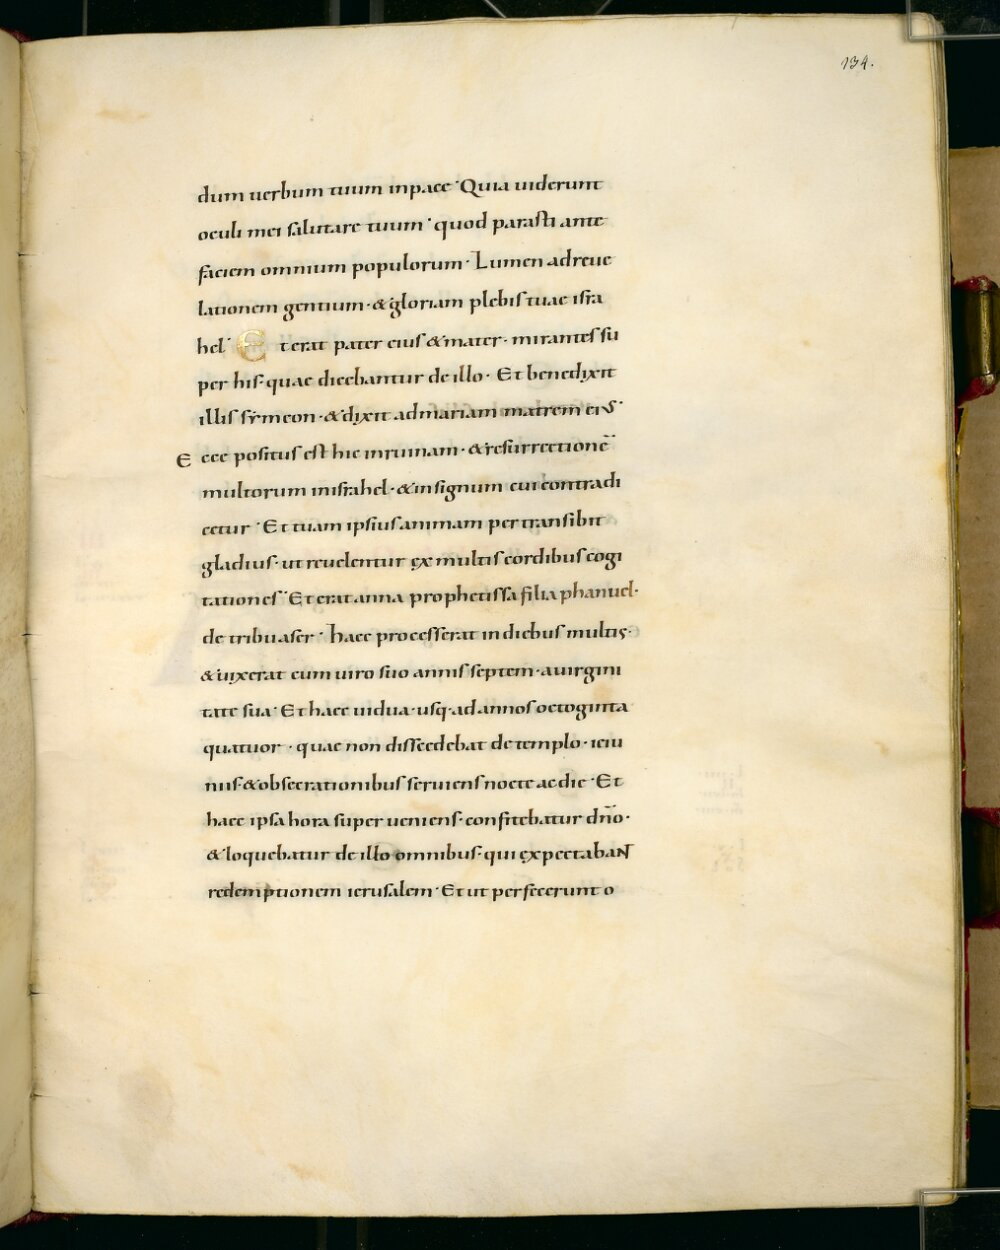 134.
dum uerbum tuum inpace· Quia uiderunt
oculi mei salutare tuum· quod parasti ante
faciem omnium populorum· Lumen adreue
lationem gentium· & gloriam plebis tuae isra
hel· Et erat pater eius & mater· mirantes su
per his· quae dicebantur de illo· Et benedixit
illis symeon· & dixit admariam matrem eius·
Ecce positus est hic inruinam· & resurrectionē
multorum inisrahel· & insignum cui contradi
cetur· Et tuam ipsius animam pertransibit
gladius· ut reuelentur ex multis cordibus cogi
tationes· Et erat anna prophetissa filia phanuel·
de tribu aser· haec processerat in diebus multis·
& uixerat cum uiro suo annis septem· auirgini
tate sua· Et haec uidua· usq· ad annos octoginta
quatuor· quae non discedebat de templo· ieiu
niis· & obsecrationibus seruiens nocte ac die· Et
haec ipsa hora superueniens· confitebatur dño·
& loquebatur de illo omnibus· qui expectabaNT
redemptionem ierusalem· Et ut perfecerunt o